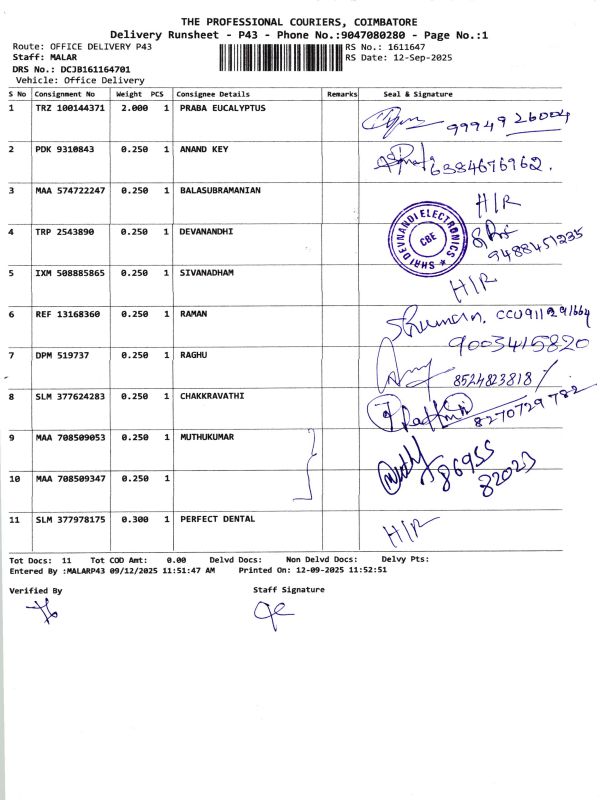 THE PROFESSIONAL COURIERS, COIMBATORE
Delivery Runsheet - P43 - Phone No.:9047080280 - Page No.:1
Route: OFFICE DELIVERY P43 RS No.: 1611647
Staff: MALAR RS Date: 12-Sep-2025
DRS No.: DCJB161164701
Vehicle: Office Delivery
S No Consignment No Weight PCS Consignee Details Remarks Seal & Signature
1 TRZ 100144371 2.000 1 PRABA EUCALYPTUS 99949 26004
2 PDK 9310843 0.250 1 ANAND KEY 6384676962.
3 MAA 574722247 0.250 1 BALASUBRAMANIAN H/R
4 TRP 2543890 0.250 1 DEVANANDHI 9488451235
SHRI DEVNANDI ELECTRONICS
CBE
5 IXM 508885865 0.250 1 SIVANADHAM H/R
6 REF 13168360 0.250 1 RAMAN CCU911291664
9003415820
7 DPM 519737 0.250 1 RAGHU 8524823818
8 SLM 377624283 0.250 1 CHAKKRAVATHI 8270729782
9 MAA 708509053 0.250 1 MUTHUKUMAR 86955
82023
10 MAA 708509347 0.250 1
11 SLM 377978175 0.300 1 PERFECT DENTAL H/R
Tot Docs: 11 Tot COD Amt: 0.00 Delvd Docs: Non Delvd Docs: Delvy Pts:
Entered By :MALARP43 09/12/2025 11:51:47 AM Printed On: 12-09-2025 11:52:51
Verified By Staff Signature